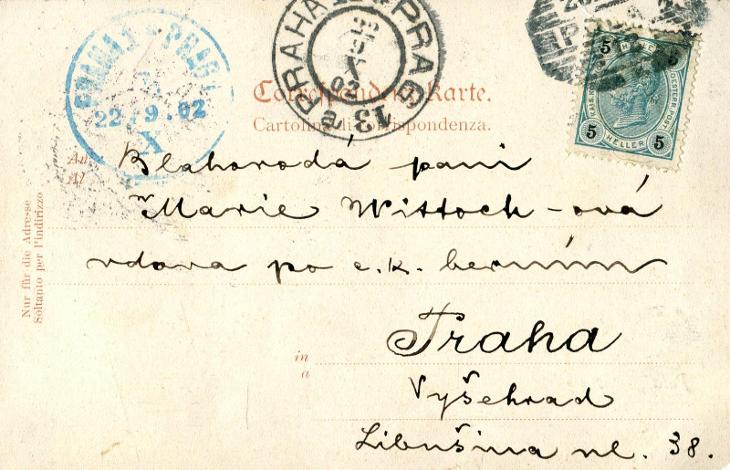 PRAHA PRAG
13 a
02
22. 9. 02
X
Correspondenz-Karte.
Cartolina di corrispondenza.
5 5
5 HELLER 5
An
Al
Blahorodá paní
Marie Wittoch-ová
vdova po c.k. berním
in
a
Praha
Vyšehrad
Libušina ul. 38.
Nur für die Adresse
Soltanto per l'indirizzo